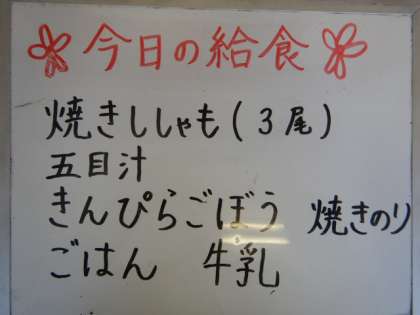 今日の給食
焼きししゃも(3尾)
五目汁
きんぴらごぼう 焼きのり
ごはん 牛乳